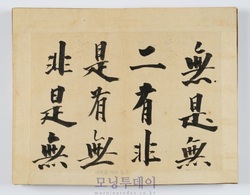 無是無
二有非
是有無
非是無
모닝투데이